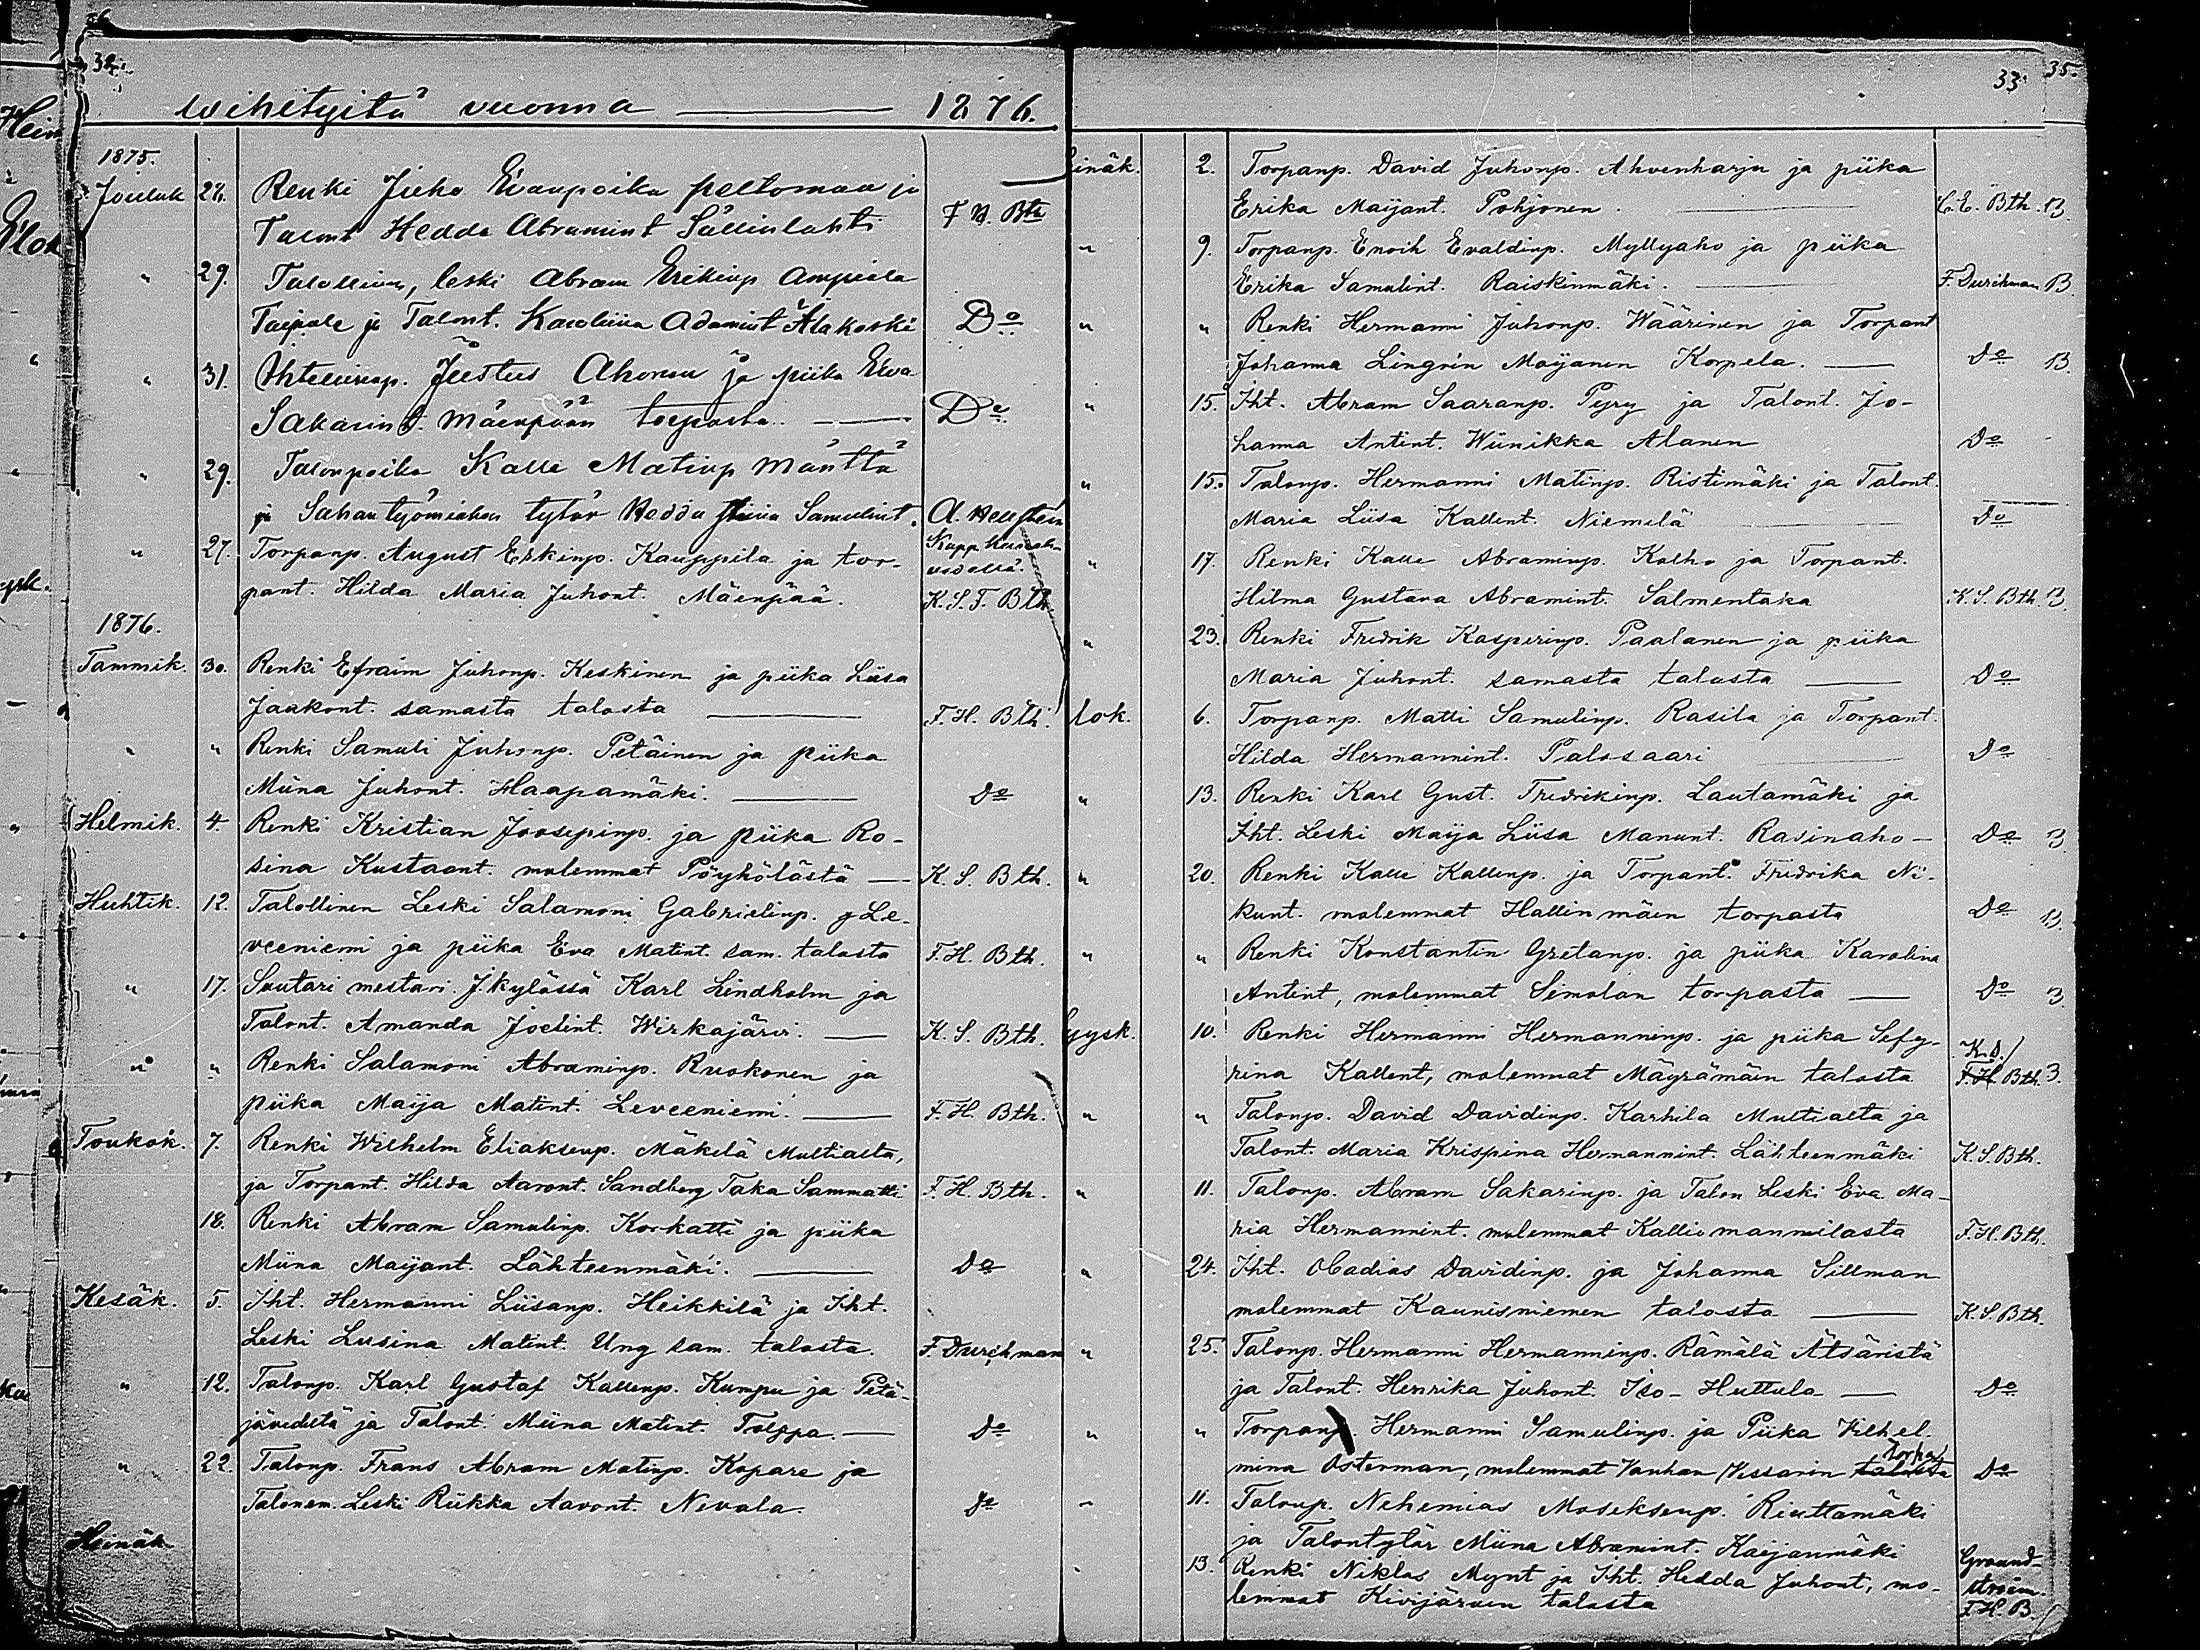 32.
wihityitä vuonna 1876.
1875.
Jouluk 28. Renki Juho Evanpoika peltomaa ja
Talont Hedda Abramint Sällinlahti F H. Bth
" 29. Talollinen, leski Abram Erikinp Ampiala
Taipale ja Talont. Karoliina Adamint Alakoski Do
" 31. Ihtellisenp. Justus Ahonen ja piika Eva
Sakarint. Mäenpään torpasta. Do
" 29. Talonpoika Kalle Matinp Mänttä
ja Sahan työmiehen tytär Hedda Stiina Samulint. A. Hellstein
" 27. Torpanp. August Erkinp. Kauppila ja tor- Kapp.
pant. Hilda Maria Juhont. Mäenpää. K. S. F. Bth.
1876.
Tammik. 30. Renki Efraim Juhonp. Keskinen ja piika Liisa
Jaakont. samasta talosta F. H. Bth.
" " Renki Samuli Juhonp. Petäinen ja piika
Miina Juhont. Haapamäki. Do
Helmik. 4. Renki Kristian Joosepinp. ja piika Ro-
sina Kustaant. molemmat Pöyhölästä K. S. Bth.
Huhtik. 12. Talollinen Leski Salamoni Gabrielinp. Le-
veeniemi ja piika Eva Matint. sam. talosta F. H. Bth.
" 17. Suutari mestari J.kylässä Karl Lindholm ja
Talont. Amanda Joelint. Wirkajärvi. K. S. Bth.
" " Renki Salamoni Abraminp. Ruokonen ja
piika Maija Matint. Leveeniemi. F. H. Bth.
Toukok. 7. Renki Wilhelm Eliaksenp. Mäkelä Multialta,
ja Torpant. Hilda Aaront. Sandberg Taka Sammatti F. H. Bth.
18. Renki Abram Samulinp. Korkatti ja piika
Miina Maijant. Lähteenmäki. Do
Kesäk. 5. Iht. Hermanni Liisanp. Heikkilä ja Iht.
Leski Lusina Matint. Ung sam. talosta. F. Durchman
" 12. Talonp. Karl Gustaf Kallenp. Kumpu ja Petä-
jävedeltä ja Talont. Miina Matint. Tolppa. Do
" 22. Talonp. Frans Abram Matinp. Kopare ja
Talonem. Leski Riikka Aaront. Nevala. Do
Heinäk
33. 35.
einäk. 2. Torpanp. David Juhonp. Ahvenharju ja piika
Erika Maijant. Pohjonen. C. E. Bth. B.
" 9. Torpanp. Enoik Evaldinp. Myllyaho ja piika
Erika Samulint. Raiskinmäki. F. Durchman B.
" " Renki Hermanni Juhonp. Wäärinen ja Torpant
Johanna Lingrin Maijanen Korpela. Do B.
" 15. Iht. Abram Saaranp. Pyry ja Talont. Jo-
hanna Antint. Wiinikka Alanen Do
" 15. Talonp. Hermanni Matinp. Ristimäki ja Talont.
Maria Liisa Kallent. Niemelä Do
" 17. Renki Kalle Abraminp. Kalho ja Torpant.
Hilma Gustava Abramint. Salmentaka K. S. Bth. B.
" 23. Renki Fredrik Kasperinp. Paalanen ja piika
Maria Juhont. samasta talosta Do
lok. 6. Torpanp. Matti Samulinp. Rasila ja Torpant.
Hilda Hermannint. Palosaari Do
" 13. Renki Karl Gust. Fredrikinp. Lautamäki ja
Iht. Leski Maija Liisa Manunt. Rasinaho Do B.
" 20. Renki Kalle Kallenp. ja Torpant. Fredrika Ni-
kunt. molemmat Hallinmäen torpasta Do B.
" " Renki Konstantin Gretanp. ja piika Karolina
Antint, molemmat Simolan torpasta Do B.
yysk. 10. Renki Hermanni Hermanninp. ja piika Sefy-
rina Kallent, molemmat Mäyrämäen talosta K. S. F. H. Bth. B.
" " Talonp. David Davidinp. Karhila Multialta ja
Talont. Maria Krispina Hermannint. Lähteenmäki K. S. Bth.
" 11. Talonp. Abram Sakarinp. ja Talon Leski Eva Ma-
ria Hermannint. molemmat Kalliomannilasta F. H. Bth.
" 24. Iht. Obadias Davidinp. ja Johanna Sillman
molemmat Kaunisniemen talosta K. S. Bth.
" 25. Talonp. Hermanni Hermanninp. Rämälä Ätsäristä
ja Talont. Henrika Juhont. Iso-Huttula Do
" " Torpanp. Hermanni Samulinp. ja Piika Vilhel-
mina Österman, molemmat Vanhan Vessarin talosta Torpas Do
" 11. Talonp. Nehemias Moseksenp. Riuttamäki
ja Talontytär Miina Abramint. Karjanmäki Ground-
" 13. Renki Niklas Mynt ja Iht. Hedda Juhont, mo- ström.
lemmat Kivijärven talosta F. H. B.